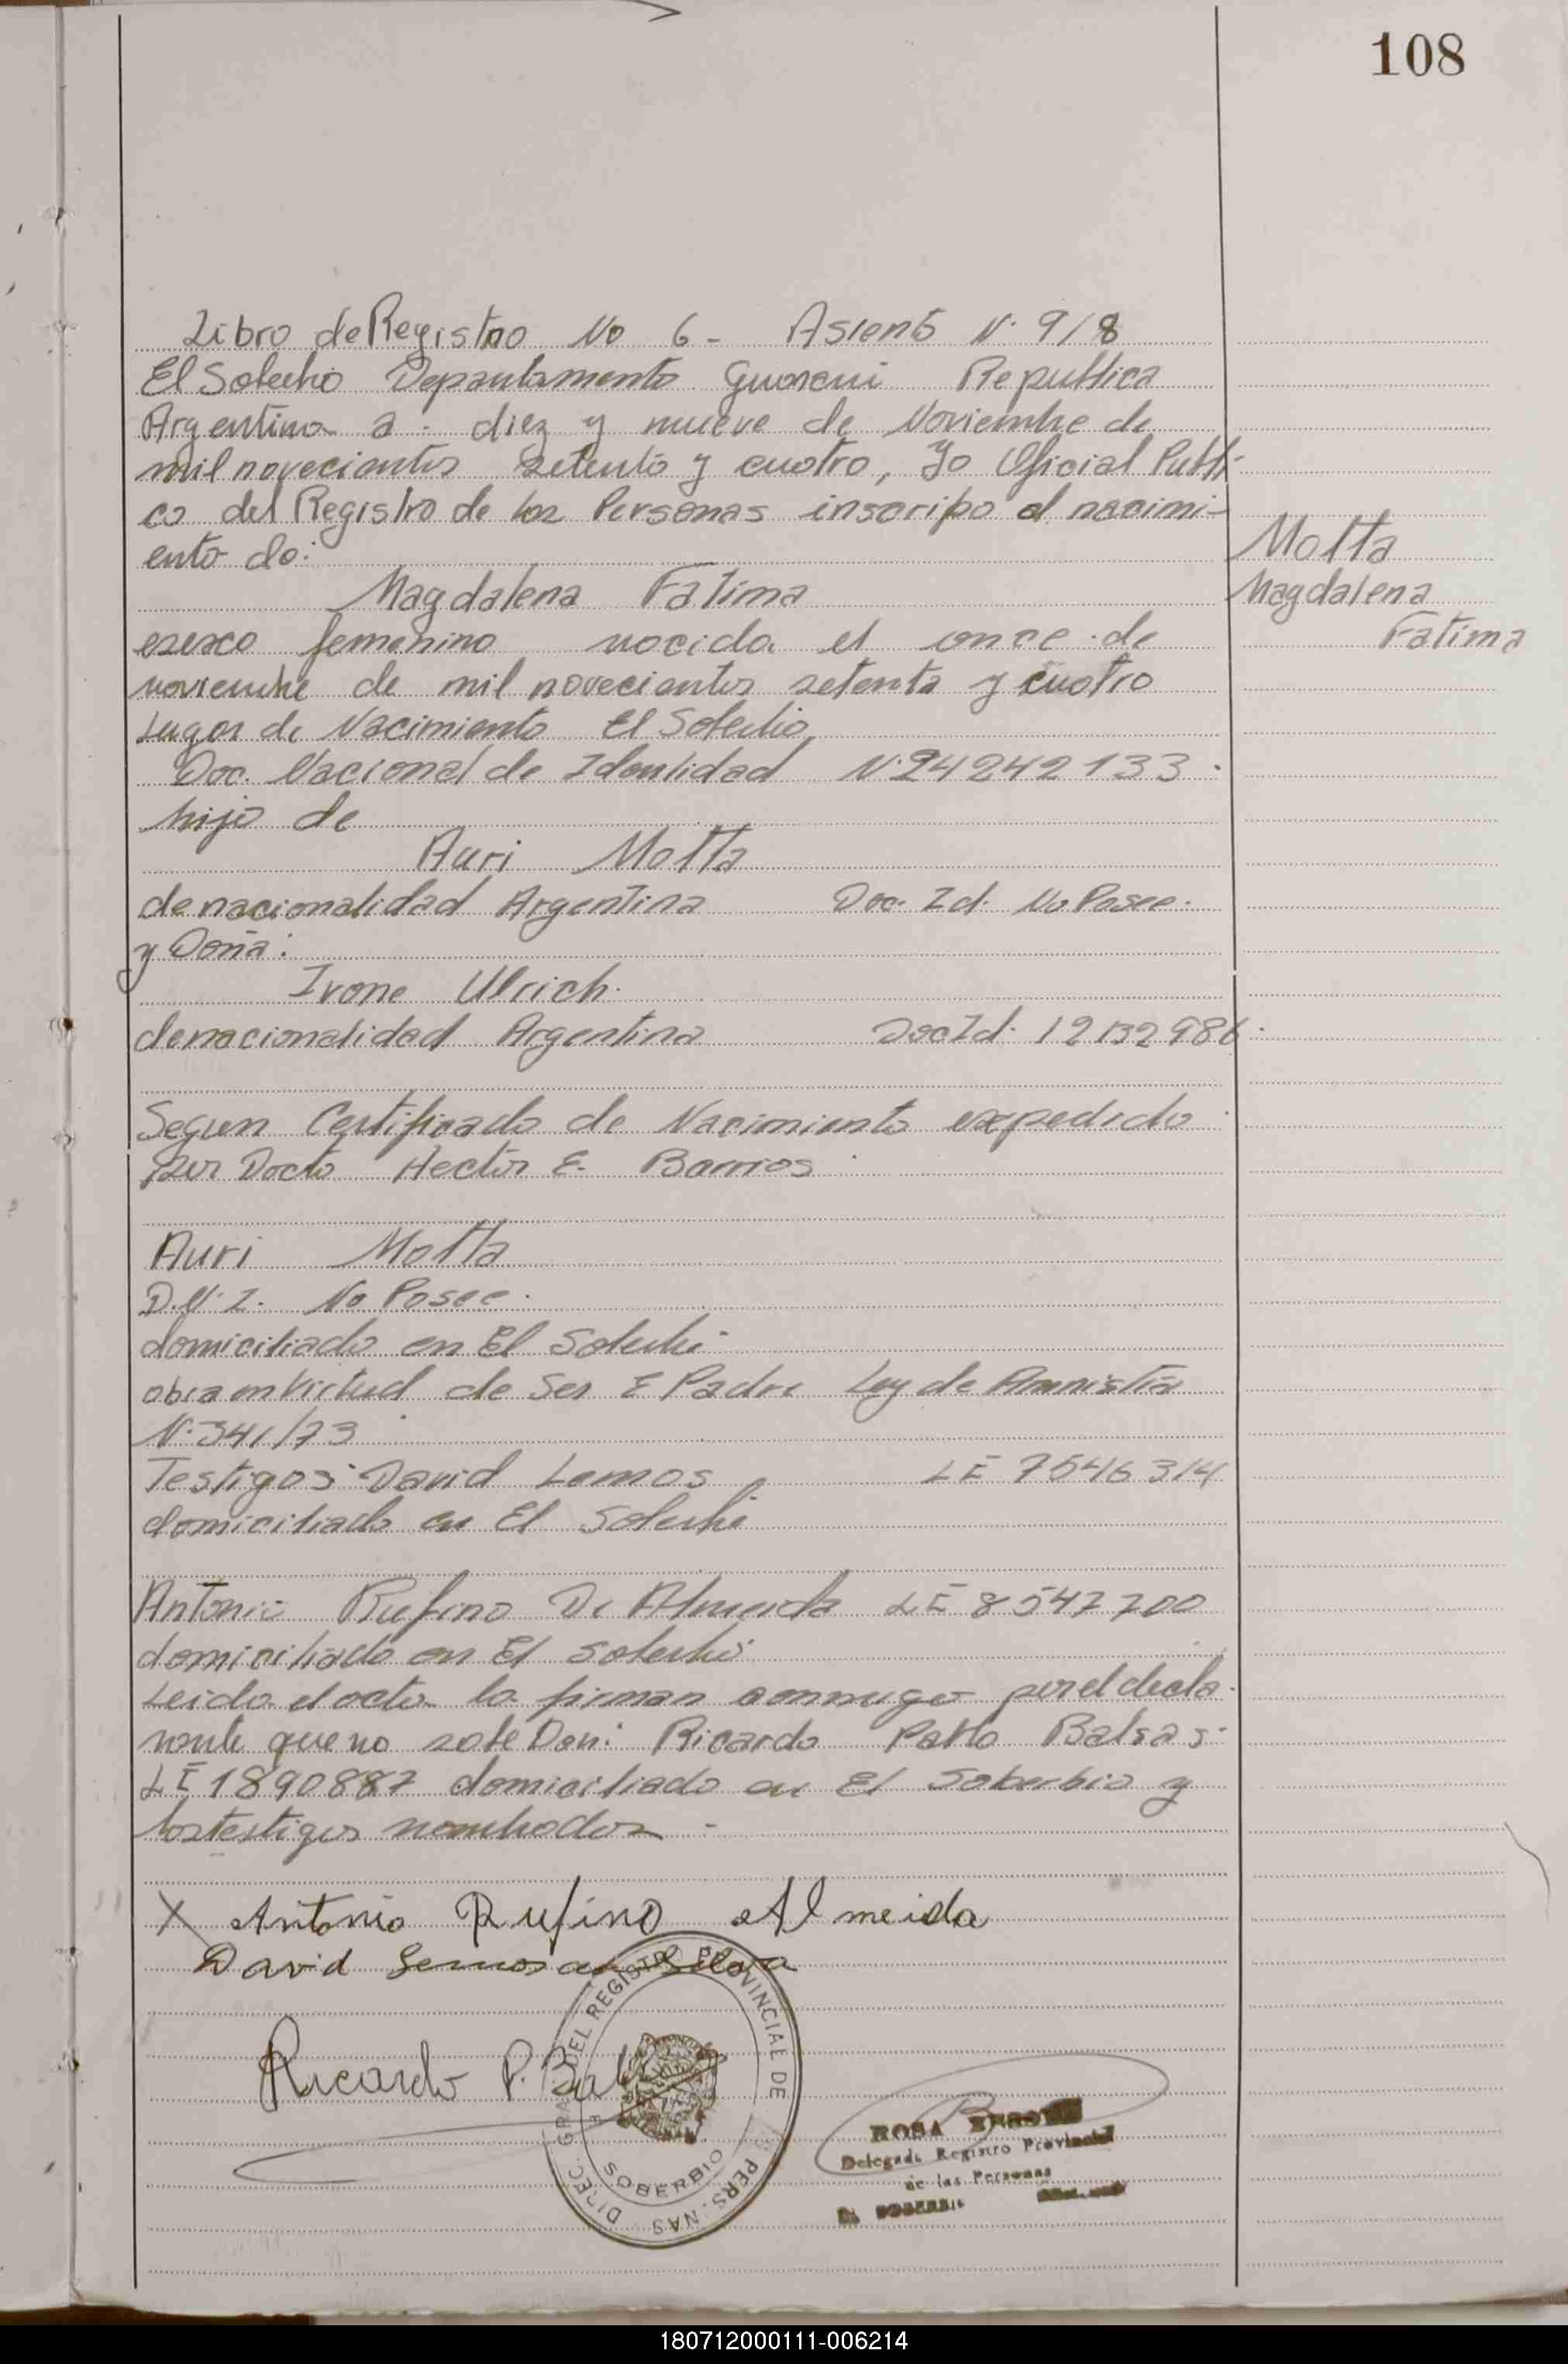 108
Libro de Registro No 6 - Asiento N. 918
El Soberbio Departamento Guarani Republica
Argentina a. diez y nueve de Noviembre de
mil novecientos setenta y cuatro, Yo Oficial Publi-
co del Registro de las Personas inscribo el nacimi-
ento de:
Motta
Magdalena Fatima
Magdalena
Fatima
sexo femenino nacida el once de
noviembre de mil novecientos setenta y cuatro
Lugar de Nacimiento El Soberbio
Doc. Nacional de Identidad N. 24242133.
hijo de
Auri Motta
de nacionalidad Argentina Doc. Id. No Posee.
y Doña:
Ivone Ulrich.
de nacionalidad Argentina Doc Id. 12132986.
Segun Certificado de Nacimiento expedido
por Docto Hector E. Barrios
Auri Motta
D.N.I. No Posee.
domiciliado en El Soberbi
obra en Virtud de Ser E Padre Ley de Amnistia
N. 341/73
Testigos David Lemos LE 7546314
domiciliado en El Soberbi
Antonio Rufino De Almeida LE 8547700
domiciliado en El Soberbio
Leida el acta la firman conmigo por el decla-
rante que no sabe Don: Ricardo Pablo Balsas-
LE 1890887 domiciliado en El Soberbio y
los testigos nombrados -
X Antonio Rufino Almeida
David Lemos da Silva
Ricardo P. Bal
DIREC. GRAL. DEL REGISTRO PROVINCIAL DE PERS. NAS
SOBERBIO
ROSA
Delegada Registro Provincial
de las Personas
EL SOBERBIO
180712000111-006214